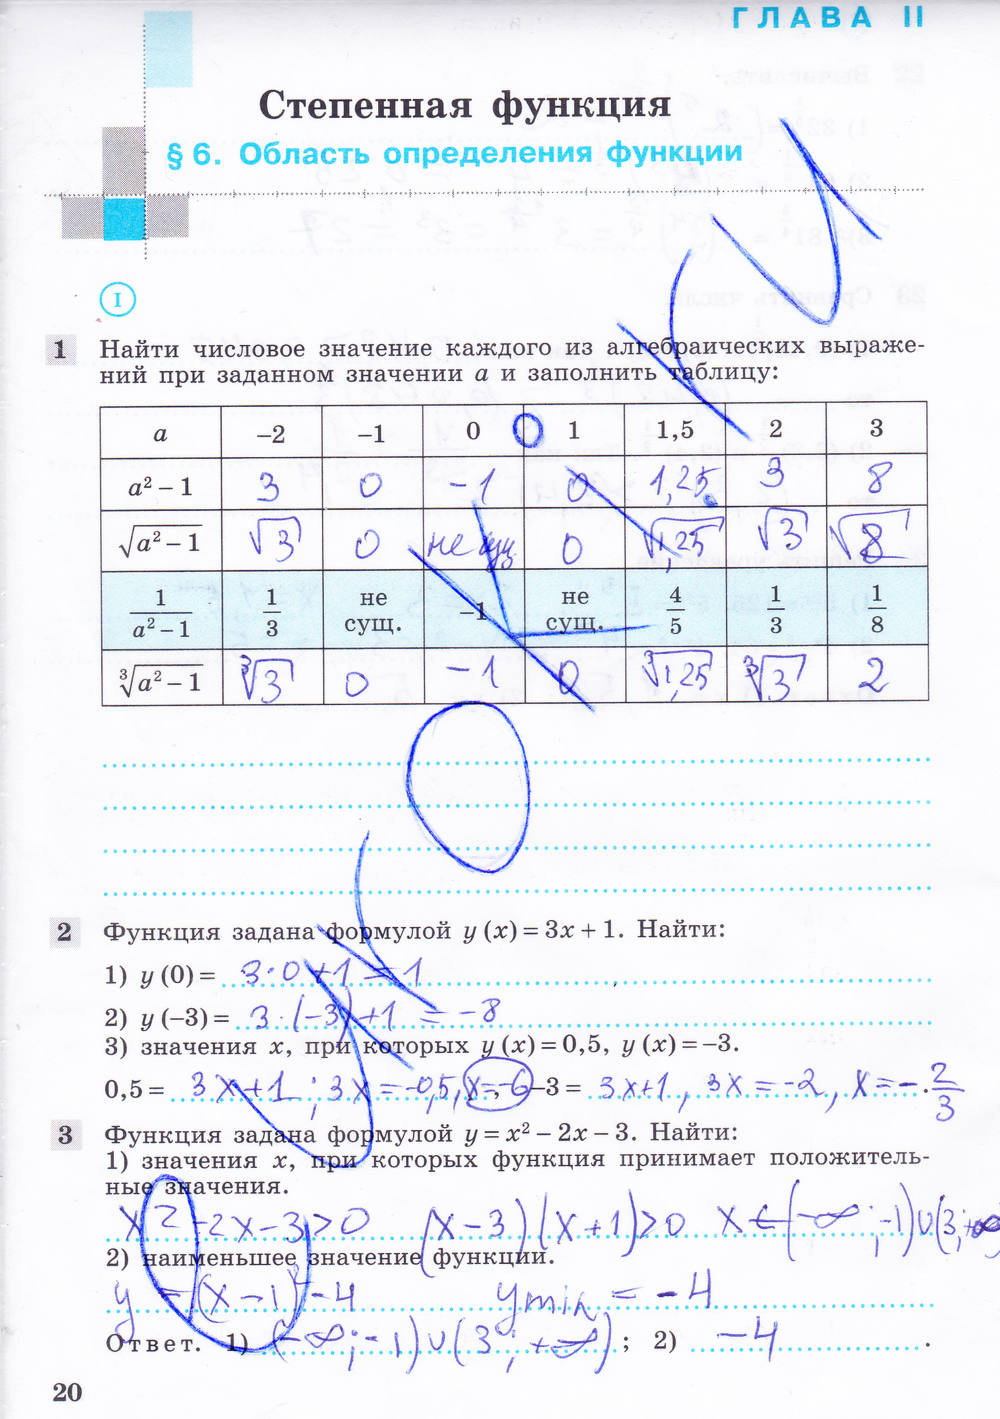 ГЛАВА II
Степенная функция
§ 6. Область определения функции
I
1 Найти числовое значение каждого из алгебраических выраже-
ний при заданном значении a и заполнить таблицу:
a −2 −1 0 1 1,5 2 3
a² − 1 3 0 −1 0 1,25 3 8
√(a² − 1) √3 0 не сущ 0 √1,25 √3 √8
1/(a² − 1) 1/3 не сущ. −1 не сущ. 4/5 1/3 1/8
∛(a² − 1) ∛3 0 −1 0 ∛1,25 ∛3 2
2 Функция задана формулой y (x) = 3x + 1. Найти:
1) y (0) = 3·0+1 = 1
2) y (−3) = 3·(−3)+1 = −8
3) значения x, при которых y (x) = 0,5, y (x) = −3.
0,5 = 3x+1 ; 3x = −0,5, x = −6 −3 = 3x+1, 3x = −2, x = −2/3
3 Функция задана формулой y = x² − 2x − 3. Найти:
1) значения x, при которых функция принимает положитель-
ные значения.
x²−2x−3>0 (x−3)(x+1)>0 x∈(−∞;−1)∪(3;+∞
2) наименьшее значение функции.
y = (x−1)²−4 ymin = −4
Ответ. 1) (−∞;−1)∪(3;+∞) ; 2) −4 .
20